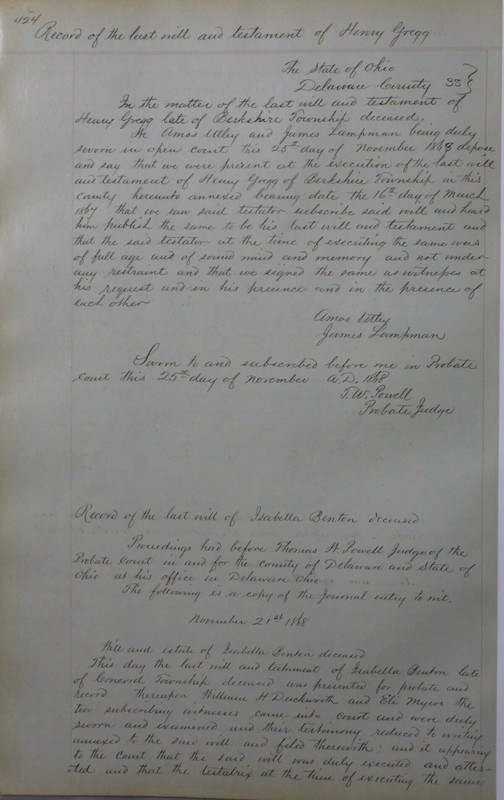 424
Record of the last will and testament of Henry Gregg
The State of Ohio
Delaware County SS
In the matter of the last will and testament of
Henry Gregg late of Berkshire Township deceased
We Amos Utley and James Lampman being duly
sworn in open court this 25th day of November 1868 depose
and say that we were present at the execution of the last will
and testament of Henry Gregg of Berkshire Township in this
county hereunto annexed bearing date the 16th day of March
1867 that we saw said testator subscribe said will and heard
him publish the same to be his last will and testament and
that the said testator at the time of executing the same was
of full age and of sound mind and memory and not under
any restraint and that we signed the same as witnesses at
his request and in his presence and in the presence of
each other
Amos Utley
James Lampman
Sworn to and subscribed before me in Probate
court this 25th day of November A.D. 1868
T. W. Powell
Probate Judge
Record of the last will of Isabella Benton deceased
Proceedings had before Thomas W. Powell Judge of the
Probate Court in and for the county of Delaware and State of
Ohio at his office in Delaware Ohio
The following is a copy of the Journal entry to wit.
November 21st 1868
Will and estate of Isabella Benton deceased
This day the last will and testament of Isabella Benton late
of Concord Township deceased was presented for probate and
record thereupon William H. Duckworth and Eli Myers the
two subscribing witnesses came into court and were duly
sworn and examined and their testimony reduced to writing
annexed to the said will and filed therewith: and it appearing
to the court that the said will was duly executed and attes-
ted and that the testatrix at the time of executing the same